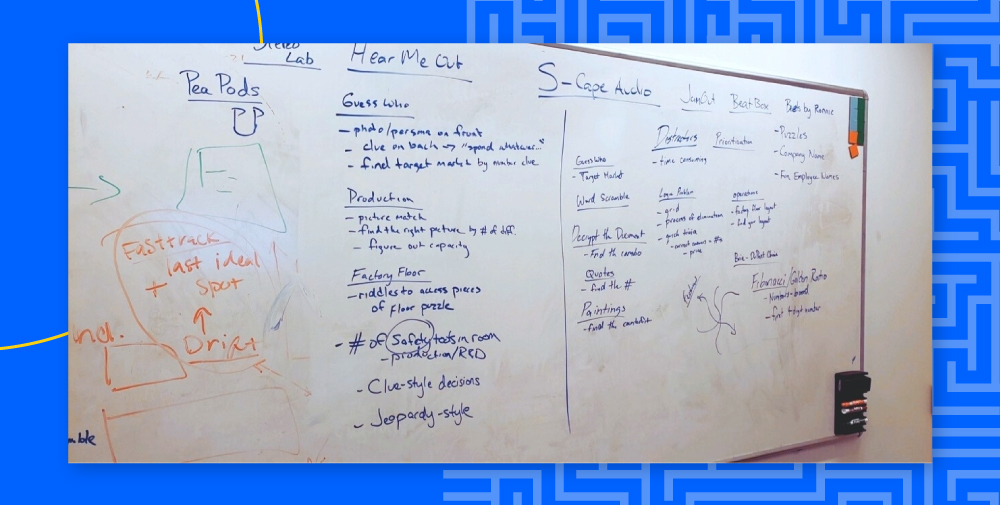 Stereo
Lab
Pea Pods
Fasttrack
last ideal
+ spot
Drift
Hear Me Out
Guess Who
- photo/persona on front
- clue on back → "spend whatever..."
- find target market by number clue
Production
- picture match
- find the right picture by # of diff.
- figure out capacity
Factory Floor
- riddles to access pieces
of floor puzzle
- # of Safety tools in room
- production/R&D
- Clue-style decisions
- Jeopardy-style
S-Cape Audio
JamOut
BeatBox
Beats by Ronnie
- Puzzles
- Company Name
- Fun Employee Names
Distractors
- time consuming
Prioritization
Guess Who
- Target Market
Word Scramble
Decrypt the Document
- find the
Quotes
- find the #
Paintings
- find the
Logic Problem
- grid
- process of elimination
- quick trivia
- correct answers = #s
- prize
operations
- factory floor layout
- find your layout
Fibonacci/Golden Ratio
- Numbers-based
- find + digit number